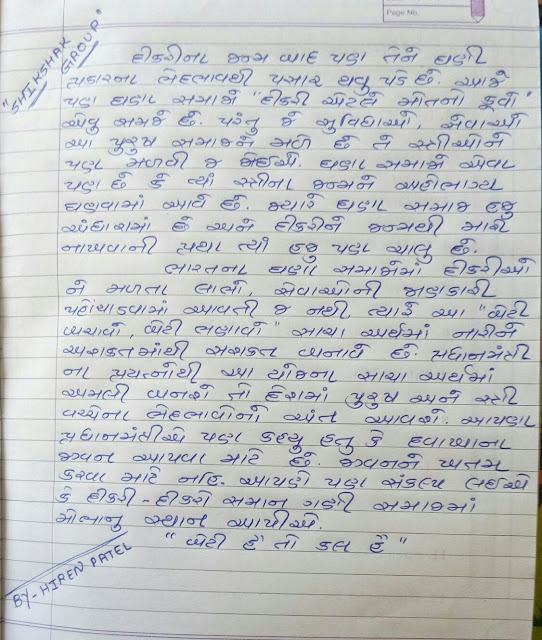 Page No.
"SHIKSHAK GROUP"
દીકરીના જન્મ બાદ પણ તેને ઘણી
પ્રકારના ભેદભાવથી પસાર થવુ પડે છે. આજે
પણ ઘણા સમાજે "દીકરી એટલે મોતનો કૂવો"
એવુ સમજે છે. પરંતુ જે સુવિધાઓ, સેવાઓ
આ પુરુષ સમાજને મળે છે તે સ્ત્રીઓને
પણ મળવી જ જોઈએ. ઘણા સમાજો એવા
પણ છે કે ત્યાં સ્ત્રીના જન્મને અહોભાગ્ય
ગણવામાં આવે છે. જ્યારે ઘણા સમાજ હજુ
અંધારામાં છે અને દીકરીને જન્મથી મારી
નાખવાની પ્રથા ત્યાં હજુ પણ ચાલુ છે.
ભારતના ઘણા સમાજોમાં દીકરીઓ
ને મળતા લાભો, સેવાઓની જાણકારી
પહોંચાડવામાં આવતી જ નથી, ત્યારે આ "બેટી
બચાવો, બેટી ભણાવો" સાચા અર્થમાં નારીને
અશક્તમાંથી સશક્ત બનાવે છે. પ્રધાનમંત્રી
ના પ્રયત્નોથી આ યોજના સાચા અર્થમાં
અમલી બનશે તો દેશમાં પુરુષ અને સ્ત્રી
વચ્ચેના ભેદભાવોનો અંત આવશે. આપણા
પ્રધાનમંત્રીએ પણ કહ્યુ હતુ કે દવાખાના
જીવન આપવા માટે છે. જીવનને ખતમ
કરવા માટે નહિ. આપણે પણ સંકલ્પ લઈએ
કે દીકરી - દીકરો સમાન ગણી સમાજમાં
મોભાનુ સ્થાન આપીએ.
"બેટી હૈ તો કલ હૈ"
BY- HIREN PATEL